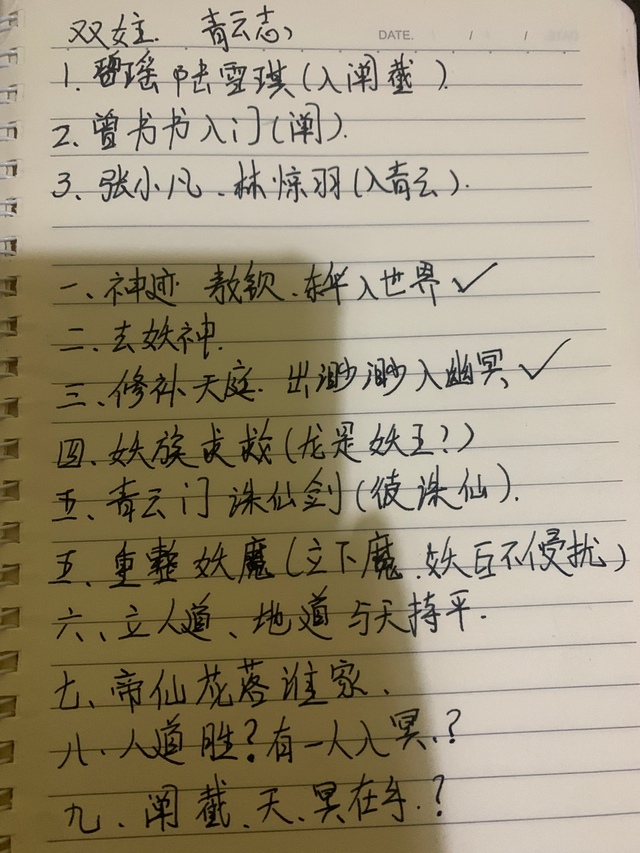 双女主. 青云志
DATE. / /
1. 碧瑶 陆雪琪(入阐截).
2. 曾书书入门(阐).
3、张小凡、林惊羽(入青云).
一、神迹 敖钦、东华入世界 ✓
二、去妖神.
三、修补天庭. 出渺渺入幽冥 ✓
四、妖族求救(龙是妖王?)
五、青云门诛仙剑(彼诛仙).
五、重整妖魔(立下魔、妖互不侵扰)
六、立人道、地道与天持平.
七、帝仙花落谁家、
八、人道胜?有一人入冥、?
九、阐截、天、冥在手.?